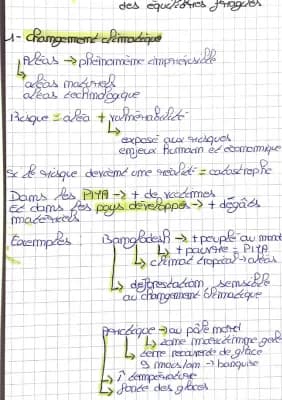 des équilibres fragiles
1- changement climatique
Aléas → phénomème imprévisible
↳ aléas naturels
aléas technologique
Risque = aléa + vulnérabilité
↳ exposé aux risques
enjeux humain et économique
Si le risque devient une réalité = catastrophe
Dans les PMA → + de victimes
Et dans les pays développer → + dégâts
matériels
Exemples
Bangladesh → + peuplé au mond
↳ + pauvre = PMA
↳ climat tropical → aléas
↳ déforestation, sensible
au changement climatique
Arctique → au pôle nord
↳ zone maritime gelé
↳ zone recouverte de glace
9 mois/an → banquise
↳ T° température
↳ fonte des glaces